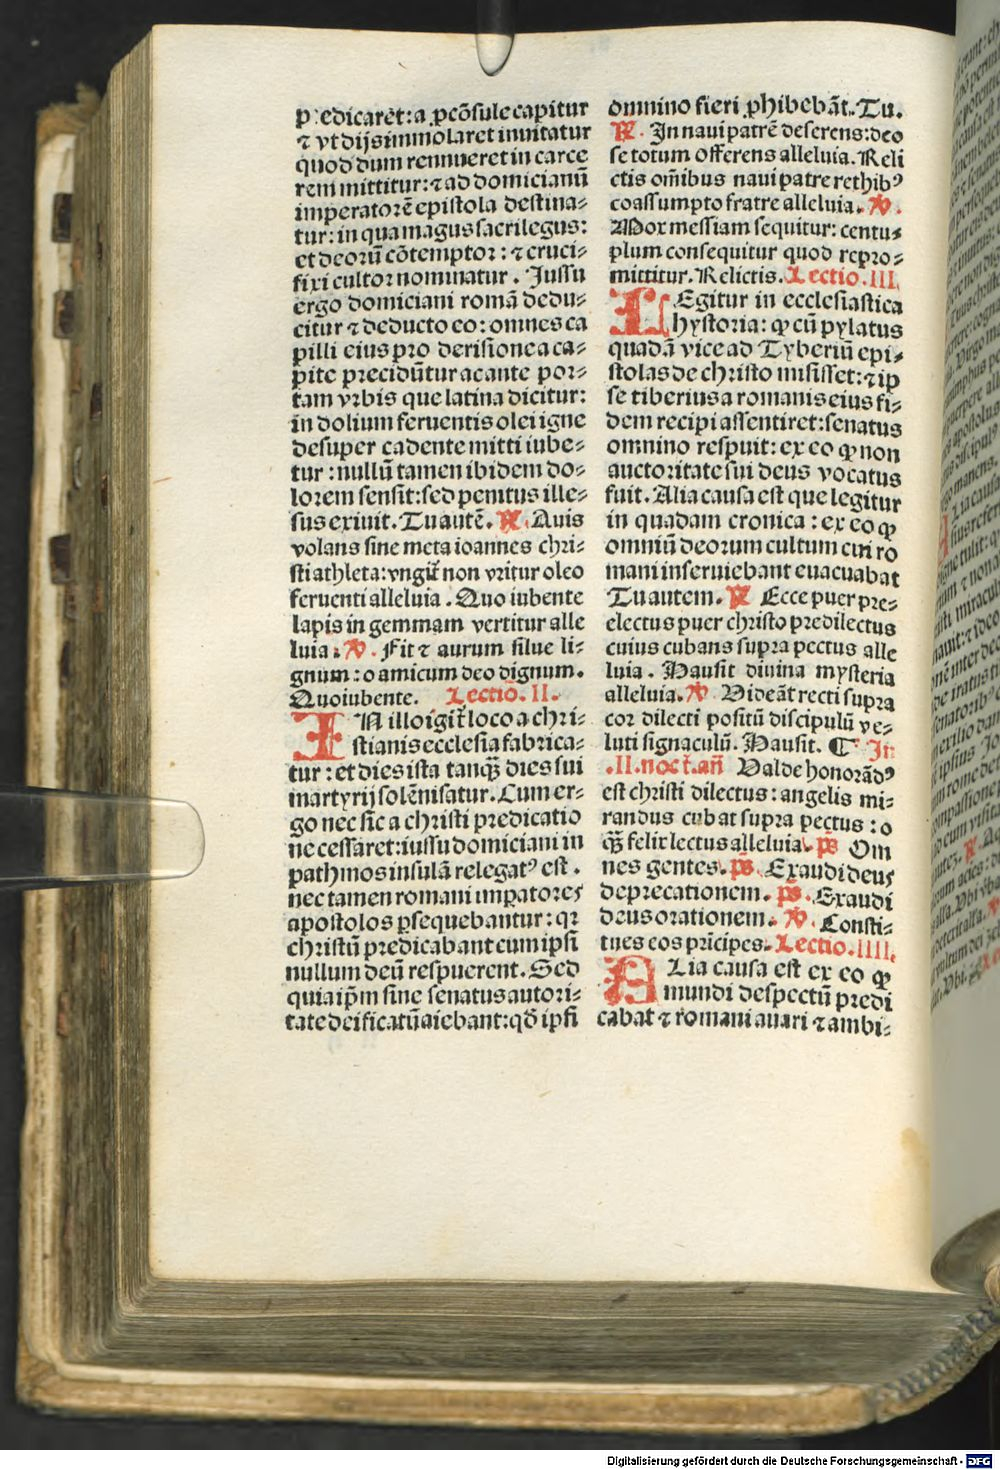 p̲redicaret: a ꝓcõsule capitur
⁊ vt dijs immolaret inuitatur
quod dum rennueret in carce
rem mittitur: ⁊ ad domicianũ
imperatorẽ epistola destina⸗
tur: in qua magus sacrilegus:
et deorũ cõtemptor: ⁊ cruci⸗
fixi cultor nominatur. Iussu
ergo domiciani romã dedu⸗
citur ⁊ deducto eo: omnes ca
pilli eius pro derisione a ca⸗
pite precidũtur ac ante por⸗
tam vrbis que latina dicitur:
in dolium feruentis olei igne
desuper cadente mitti iube⸗
tur: nullũ tamen ibidem do⸗
lorem sensit: sed penitus ille⸗
sus exiuit. Tu autẽ. ℟. Auis
volans sine meta ioannes chri⸗
sti athleta: vngit̃ non vritur oleo
feruenti alleluia. Quo iubente
lapis in gemmam vertitur alle
luia: ℣. Fit ⁊ aurum silue li⸗
gnum: o amicum deo dignum.
Quo iubente. Lectiõ. II.
IN illo igit̃ loco a chri⸗
stianis ecclesia fabrica⸗
tur: et dies ista tanqȝ dies sui
martyrij solẽnisatur. Cum er⸗
go nec sic a christi predicatio
ne cessaret: iussu domiciani in
pathmos insulã relegatꝰ est.
nec tamen romani imꝑatores
apostolos ꝑsequebantur: qꝛ
christũ predicabant cum ipsũ
nullum deũ respuerent. Sed
quia ip̃m sine senatus autori⸗
tate deificatũ aiebant: qđ ipsi
omnino fieri ꝓhibebãt. Tu.
℟. In naui patrẽ deserens: deo
se totum offerens alleluia. Reli
ctis om̃ibus naui patre rethibꝰ
coassumpto fratre alleluia. ℣.
Mox messiam sequitur: centu⸗
plum consequitur quod repro⸗
mittitur. Relictis. Lectio. III.
LEgitur in ecclesiastica
hystoria: ꝙ cũ pylatus
quadã vice ad Tyberiũ epi⸗
stolas de christo misisset: ⁊ ip
se tiberius a romanis eius fi⸗
dem recipi assentiret: senatus
omnino respuit: ex eo ꝙ non
auctoritate sui deus vocatus
fuit. Alia causa est que legitur
in quadam cronica: ex eo ꝙ
omniũ deorum cultum cui ro
mani inseruiebant euacuabat
Tu autem. ℟. Ecce puer pre⸗
electus puer christo predilectus
cuius cubans supra pectus alle
luia. Hausit diuina mysteria
alleluia. ℣. Videãt recti supra
cor dilecti positũ discipulũ ve⸗
luti signaculũ. Hausit. ¶ In
.II. noct̃. añ Valde honorãdꝰ
est christi dilectus: angelis mi⸗
randus cubat supra pectus: o
qȝ felix lectus alleluia. p̃s Om
nes gentes. p̃s. Exaudi deus
deprecationem. p̃s. Exaudi
deus orationem. ℣. Consti⸗
tues eos prĩcipes. Lectio. IIII.
ALia causa est ex eo ꝙ
mundi despectũ predi
cabat ⁊ romani auari ⁊ ambi⸗
Digitalisierung gefördert durch die Deutsche Forschungsgemeinschaft - DFG